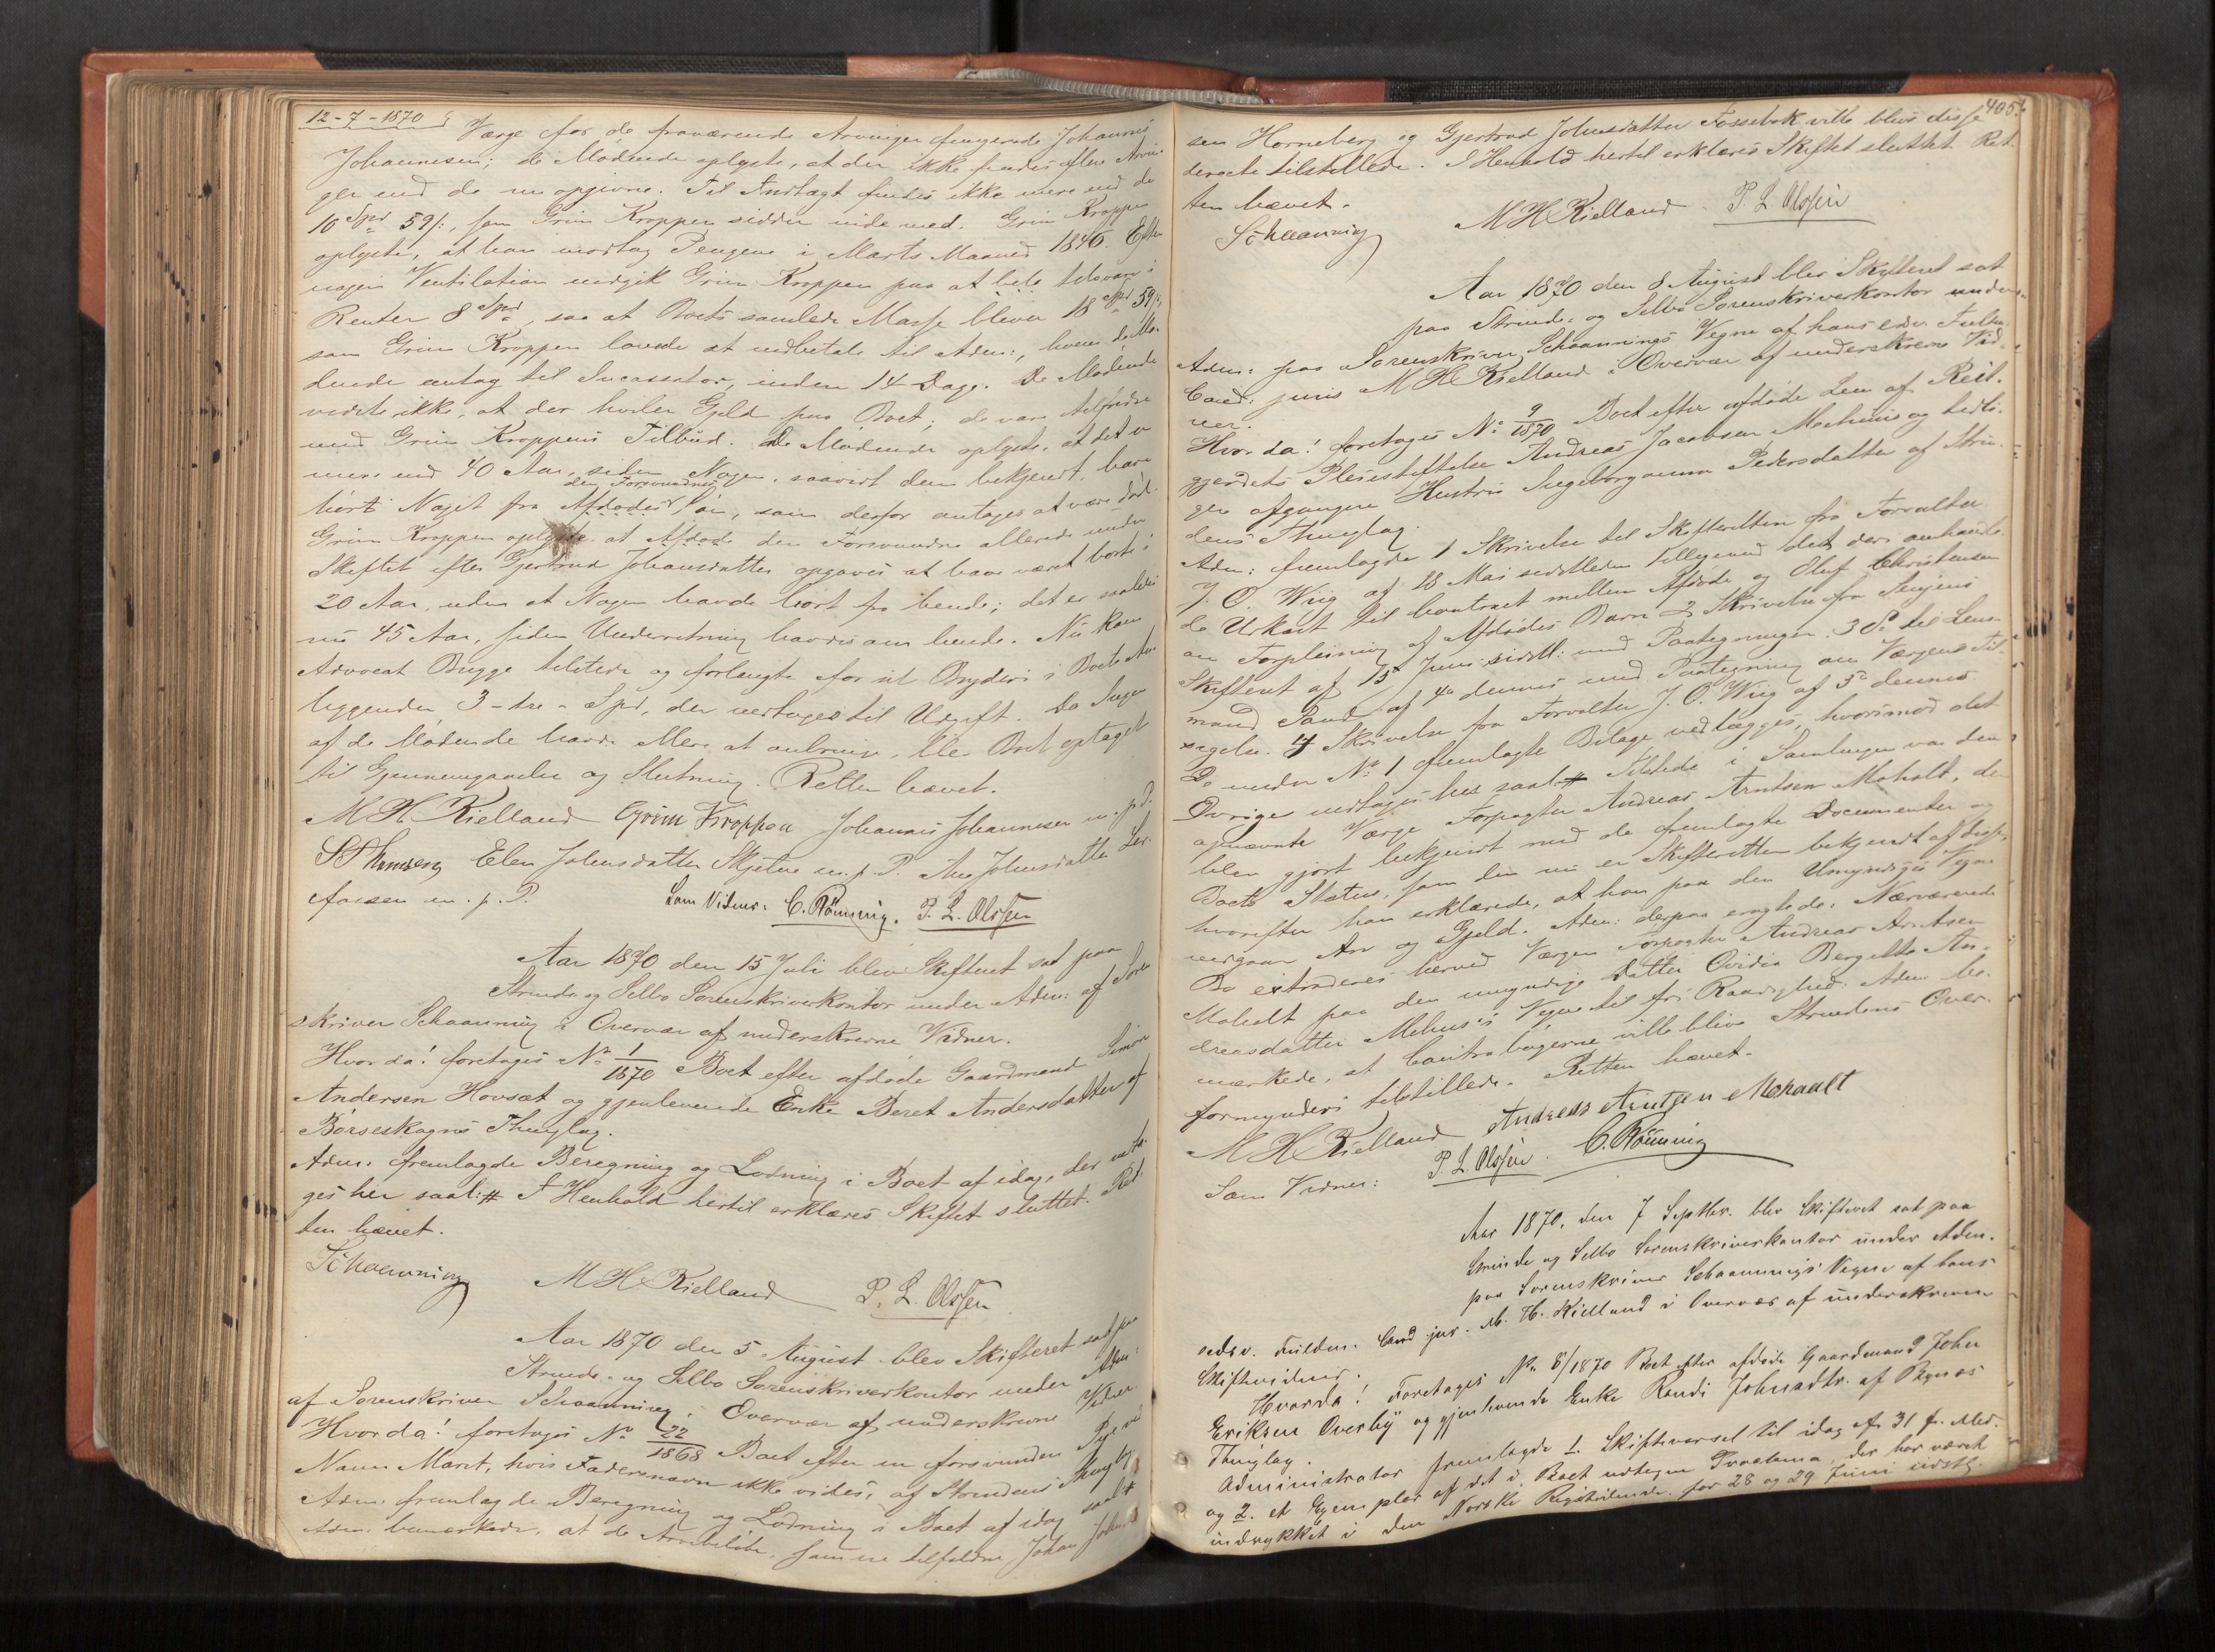 12-7-1870
Værge for de fraværende Arvinger fungerede Johannes
Johannesen; de Mødende oplyste, at der ikke findes flere Arvin-
ger end de nu opgivne. Til Indtægt findes ikke mere end de
10 Spd 59 /:, som Grim Kroppen sidder inde med. Grim Kroppen
oplyste, at han modtog Pengene i Marts Maaned 1846. Efter
nogen Ventilation indgik Grim Kroppen paa at tilsvare i
Renter 8 Spd, saa at Boets samlede Masse bliver 18 Spd 59 /:
som Grim Kroppen lovede at indbetale til Adm:, hvem de Mø-
dende antog til Incassator, inden 14 Dage. De Mødende
vidste ikke, at der hviler Gjeld paa Boet; de vare tilfredse
med Grim Kroppens Tilbud. De Mødende oplyste, at det er
mere end 40 Aar, siden Nogen, saavidt dem bekjendt, have
hørt Noget fra den Forsvundne, som derfor antages at være død.
Grim Kroppen oplyste at den Forsvundne allerede under
Skiftet efter Gjertrud Johansdatter opgaves at have været borte i
20 Aar, uden at Nogen havde hørt fra hende; det er saaledes
nu 45 Aar, siden Underretning havdes om hende. Nu kom
Advocat Bugge tilstede og forlangte for sit Bryderi i Boets An-
liggender 3 - tre - Spd, der vedtoges til Udgift. Da Ingen
af de Mødende havde Mere at anbringe, blev Boet optaget
til Gjennemgaaelse og Slutning. Retten hævet.
M H Kielland Grim Kroppen Johannes Johannesen m. p. P.
Elen Johnsdatter m. p. P. Ane Johnsdatter Ler-
fossen m. p. P. Som Vidner: C. Rönning. P. L. Olssen
Aar 1870 den 15 Juli blev Skifteret sat paa
Strinde og Selbo Sorenskriverkontor under Adm: af Soren-
skriver Schaanning i Overvær af underskrevne Vidner.
Hvorda! foretoges No 1/1870 Boet efter afdøde Gaardmand Simon
Andersen Hovsæt og gjenlevende Enke Beret Andersdatter af
Børseskogns Thinglag.
Adm: fremlagde Beregning og Lodning i Boet af idag, der indta-
ges her saal: # I Henhold hertil erklæres Skiftet sluttet. Ret-
ten hævet.
Schaanning M H Kielland P. L. Olssen
Aar 1870 den 5 August blev Skifteret sat paa
Strinde- og Selbo Sorenskriverkontor under Adm:
af Sorenskriver Schaanning i Overvær af underskrevne Vidner.
Hvorda! foretoges No 22/1868 Boet efter en forsvunden Pige ved
Navn Maret, hvis Fadersnavn ikke vides, af Strindens Thinglag.
Adm: fremlagde Beregning og Lodning i Boet af idag saal: #
Adm: bemærkede, at de Arvebeløbe, som ere tilfaldne Johan John-
405.
sen Horneberg og Gjertrud Johnsdatter Fossebæk ville blive disse
derecte tilstillede. I Henhold hertil erklæres Skiftet sluttet. Ret-
ten hævet.
Schaanning M H Kielland P. L. Olssen
Aar 1870 den 8 August blev Skifteret sat
paa Strinde- og Selbo Sorenskriverkontor under
Adm: paa Sorenskriver Schaannings Vegne af hans edsv. Fuldm:
Cand: juris M H Kielland i Overvær af underskrevne Vid-
ner.
Hvorda! foretoges No 9/1870 Boet efter afdøde Lem af Reit-
gjerdets Pleiestiftelse Andreas Jacobsen Mehuus og tidli-
gere afgangne Hustru Ingeborganna Pedersdatter af Strin-
dens Thinglag.
Adm: fremlagde 1 Skrivelse til Skifteretten fra Forvalter
J. O. Wiig af 18 Mai sidstleden tilligemed det deri omhandle-
de Udkast til Contract mellem Afdøde og Oluf Christensen
om Forpleining af Afdødes Barn 2 Skrivelse fra Senjens
Skifteret af 15 Juni sidstl: med Paategninger. 3 Do til Lens-
mand Sand af 4de dennes med Paategning om Værgens Til-
sigelse. 4 Skrivelse fra Forvalter J. O. Wiig af 5te dennes.
De under No 1 fremlagte Bilage vedlægges, hvorimod det
Øvrige indtages her saal: # Tilstede i Samlingen var den
opnævnte Værge Forpagter Andreas Arntsen Moholt, der
blev gjort bekjendt med de fremlagte Documenter og
Boets Status, som den nu er Skifteretten bekjendt af disse,
hvorefter han erklærede, at han paa den Umyndiges Vegne
vedgaar Arv og Gjeld. Adm: derpaa eragtede: Nærværende
Bo extraderes herved Værgen Forpagter Andreas Arntsen
Moholt paa den umyndige Datter Ovidia Bergitte An-
dreasdatter Mehus's Vegne til fri Raadighed. Adm: be-
mærkede, at Contrabøgerne ville blive Strindens Over-
formynderi tilstillede. Retten hævet.
M H Kielland Andreas Arntsen Mohaalt
Som Vidner: P. L. Olssen. C. Rönning
Aar 1870, den 7 Septbr. blev Skifteret sat paa
Strinde og Selbo Sorenskriverkontor under Adm.
paa Sorenskriver Schaannings Vegne af hans
edsv. Fuldm. Cand jur. M. H. Kielland i Overvær af underskrevne
Skiftevidner.
Hvorda! Foretoges No 8/1870 Boet efter afdøde Gaardmand John
Eriksen Overby og gjenlevende Enke Randi Johnsdtr. af Bynæs
Thinglag.
Administrator fremlagde 1. Skiftevarsel til idag af 31 f. Md.
og 2. et Exemplar af det i Boet udtagne Proclama, der har været
indrykket i den Norske Rigstidende for 28 og 29 Juni sidstl.